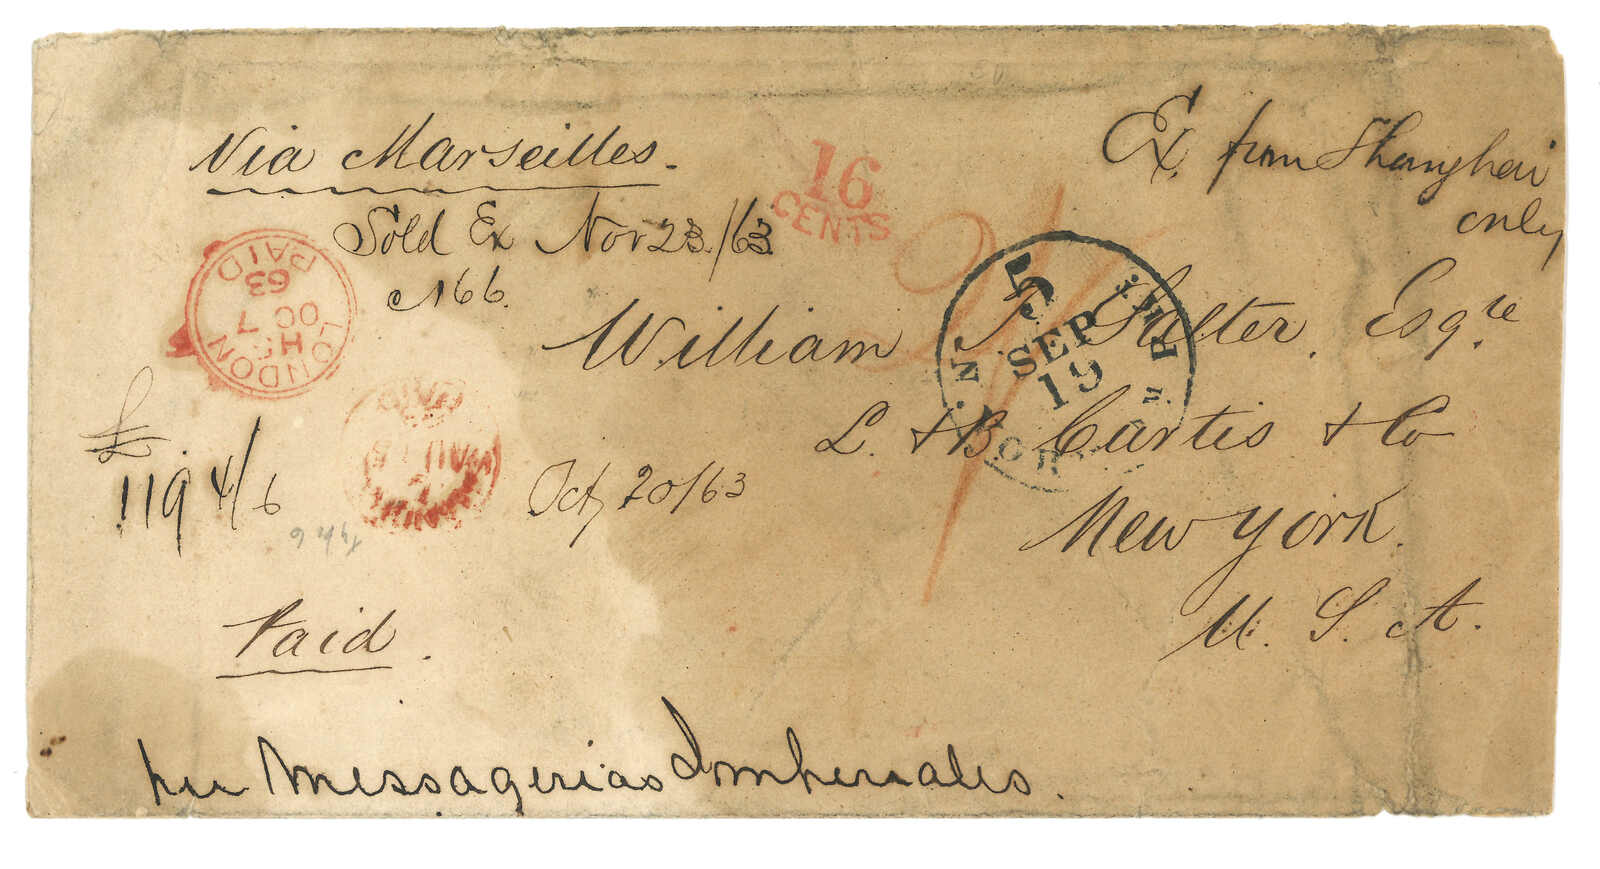 Via Marseilles.
Ex. from Shanghai
only
16
CENTS
Sold Ex Nov 23/63
N 66.
LONDON
HS
OC 7
63
PAID
5
SEP
19
William T. Salter. Esqre
L. & B Curtis & Co
New York.
U. S. A.
£
119 4/6
PAID
Oct 20/63
Paid.
per Messagerias Imperiales.